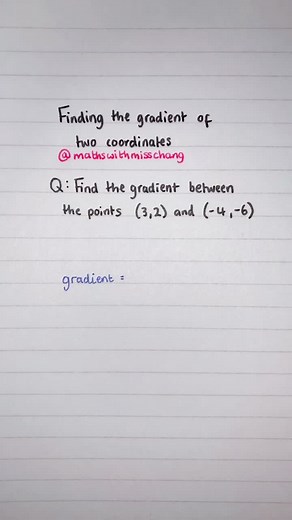 Finding the gradient of
two coordinates
@mathswithmisschang
Q: Find the gradient between
the points (3,2) and (-4,-6)
gradient =